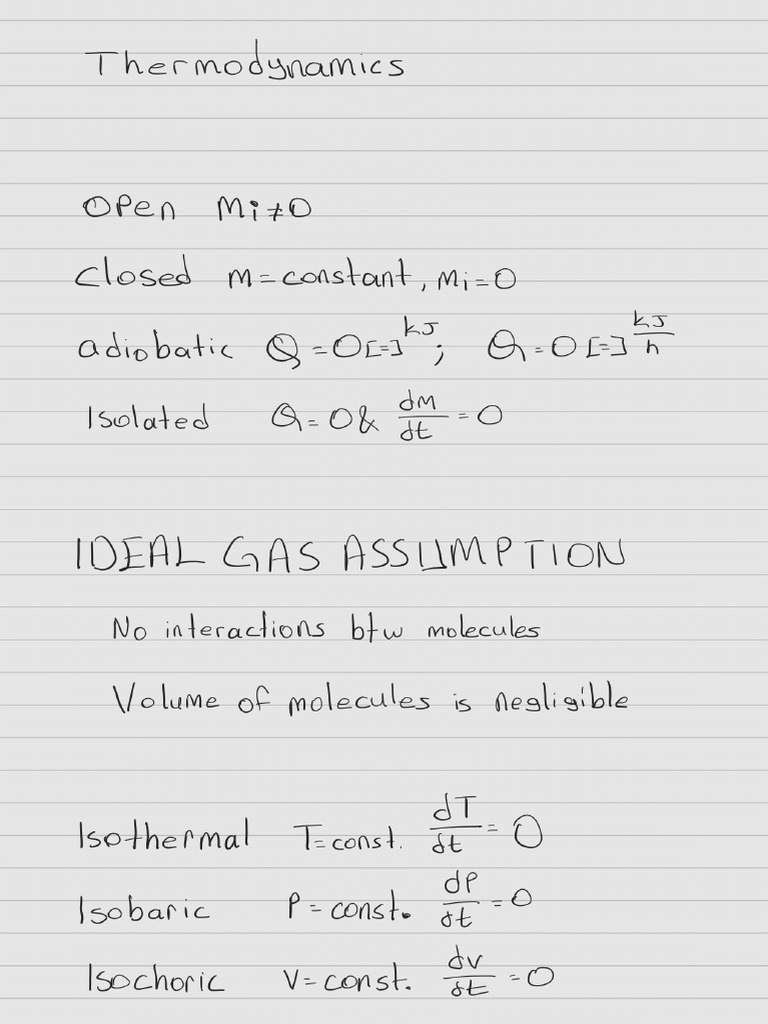 Thermodynamics
Open Mi≠0
Closed M=constant, Mi=0
adiobatic Q=0[=]kJ; Q=0[=]kJ/h
Isolated Q=0 & dM/dt=0
IDEAL GAS ASSUMPTION
No interactions btw molecules
Volume of molecules is negligible
Isothermal T=const. dT/dt=0
Isobaric P=const. dP/dt=0
Isochoric V=const. dv/dt=0